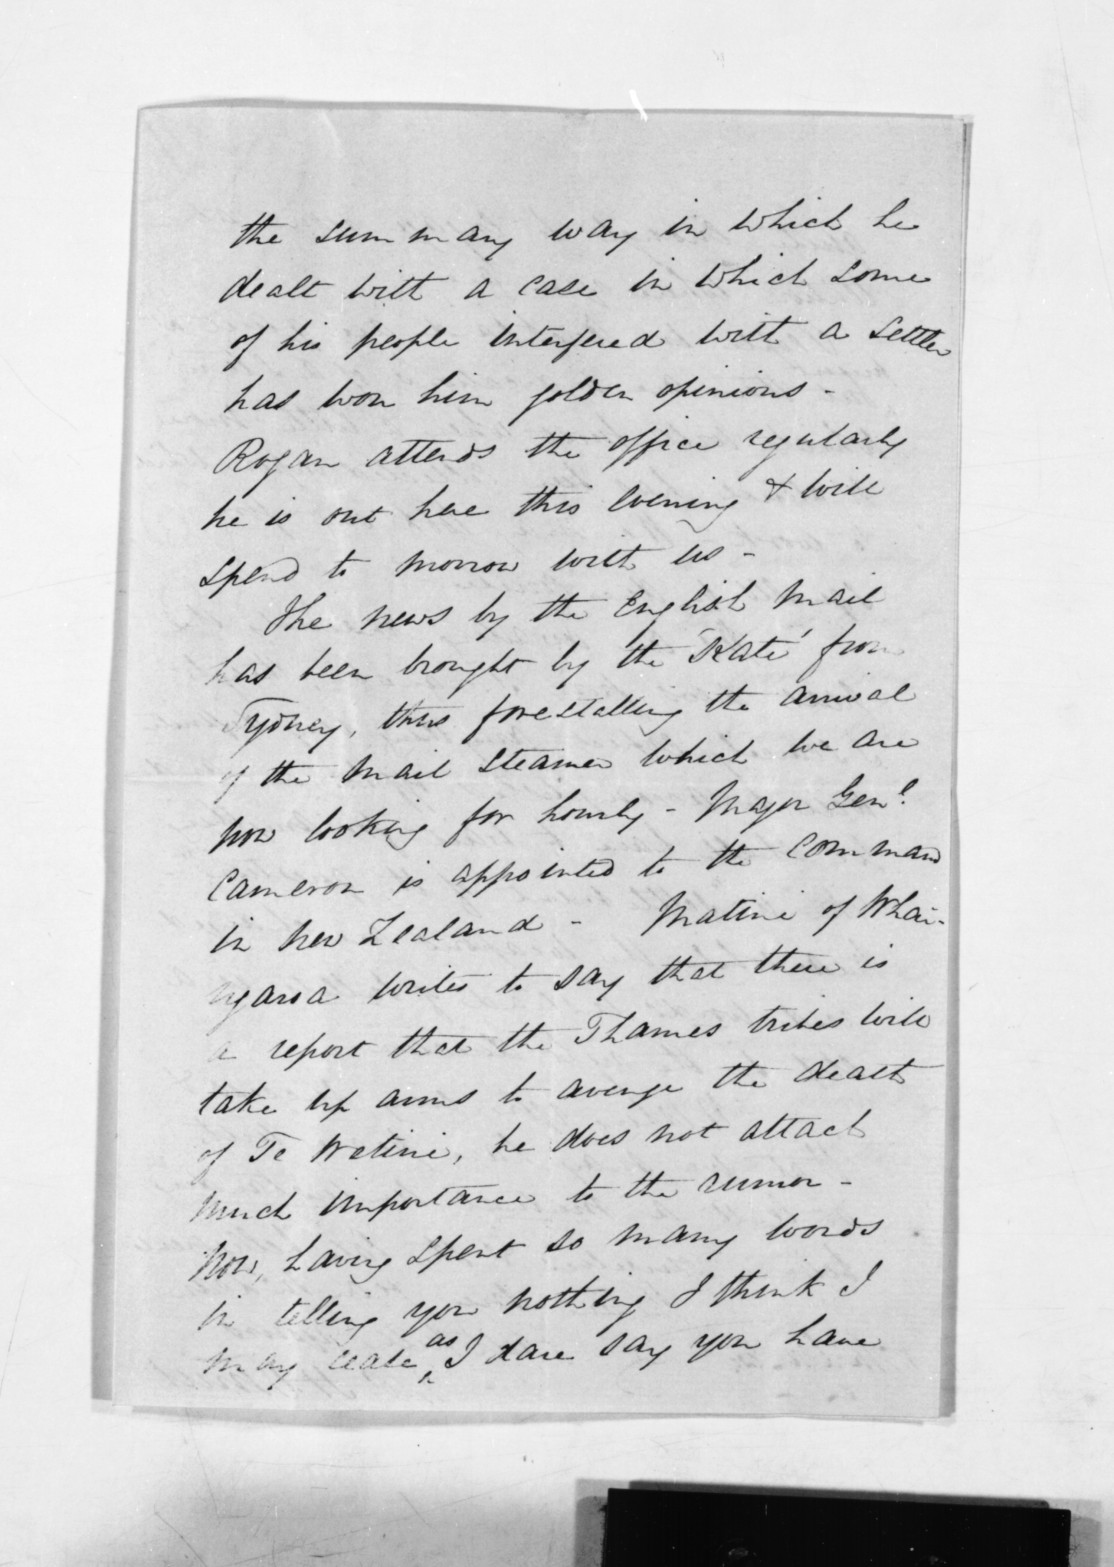 the summary way in which he
dealt with a case in which some
of his people interfered with a settler
has won him golden opinions -
Rogan attends the office regularly
he is out here this evening & will
spend to morrow with us -
The news by the English Mail
has been brought by the 'Kate' from
Sydney, thus forestalling the arrival
of the Mail Steamer which we are
now looking for hourly - Major Genl.
Cameron is appointed to the command
in New Zealand - Matini of Whai-
ngaroa writes to say that there is
a report that the Thames tribes will
take up arms to avenge the death
of Te Wetini, he does not attach
much importance to the rumor -
Now, having spent so many words
in telling you nothing I think I
may cease as I dare say you have